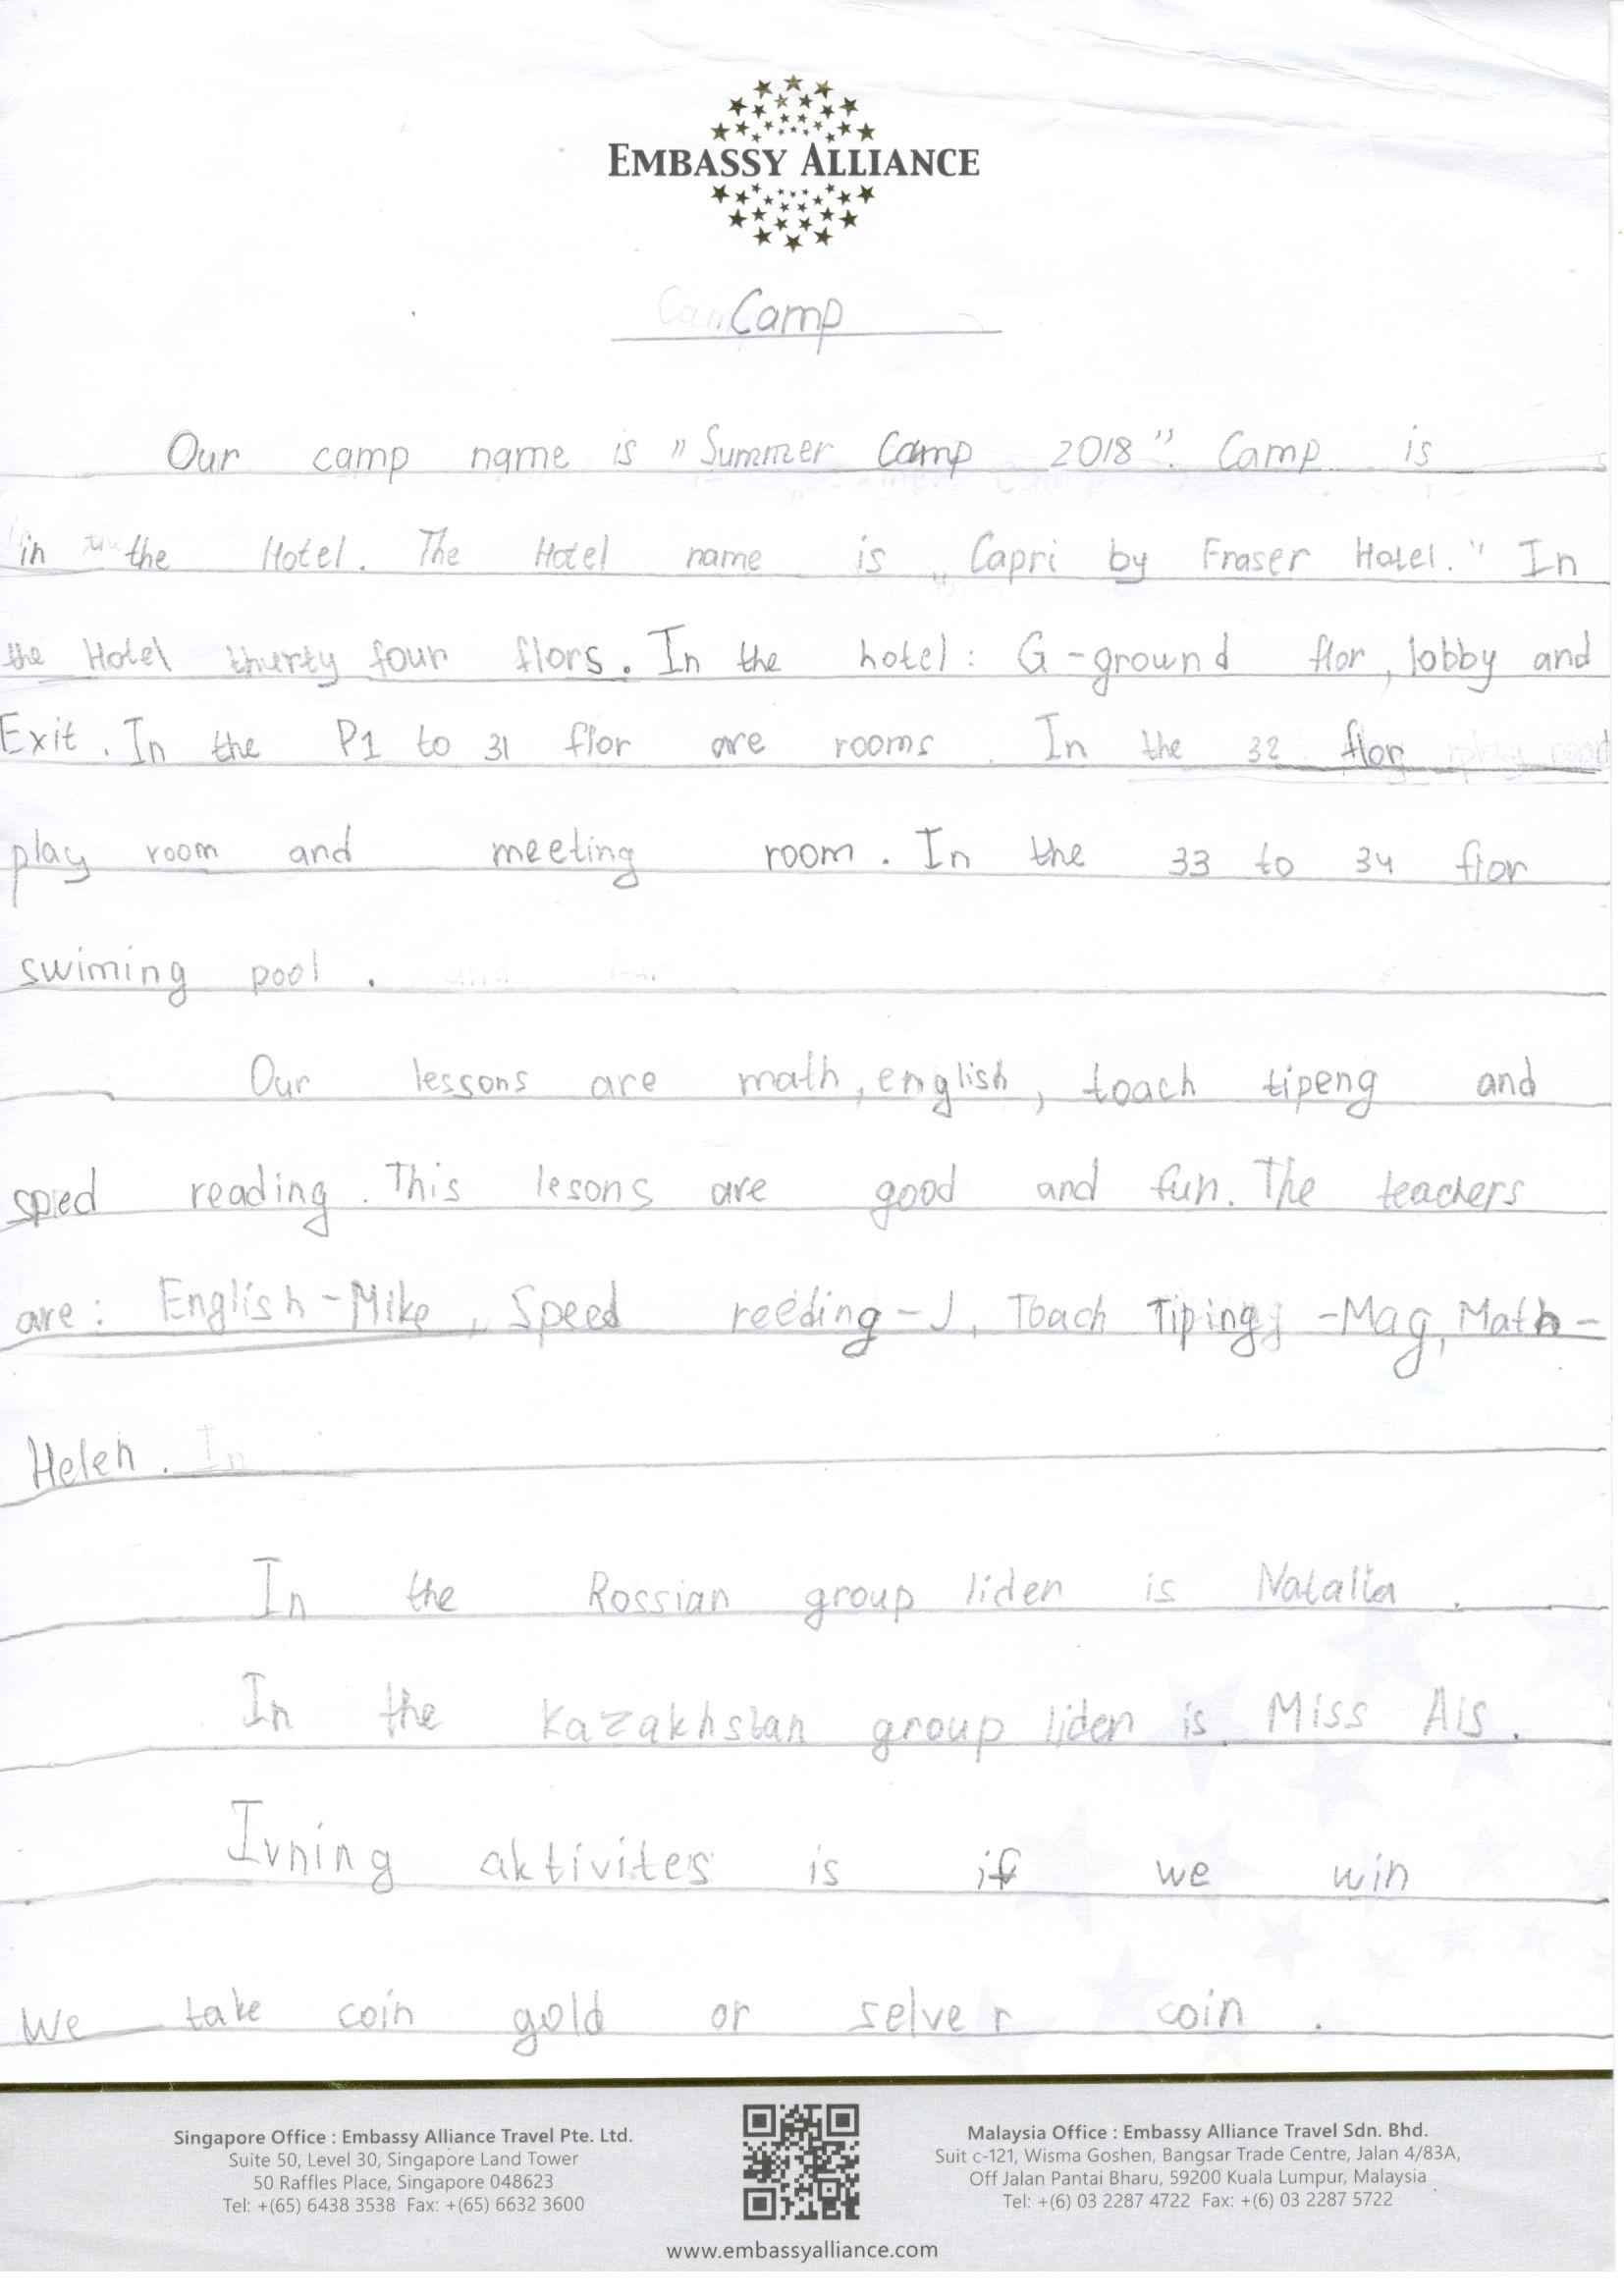 EMBASSY ALLIANCE
Camp
Our camp name is "Summer Camp 2018". Camp is
in the Hotel. The Hotel name is „Capri by Fraser Hotel." In
the Hotel thurty four flors. In the hotel: G-ground flor, lobby and
Exit. In the P1 to 31 flor are rooms. In the 32 flor
play room and meeting room. In the 33 to 34 flor
swiming pool.
Our lessons are math, english, toach tipeng and
spied reading. This lesons are good and fun. The teachers
are: English-Mike, Speed reeding-J, Toach Tiping -Mag, Math-
Helen.
In the Rossian group liden is Natalia.
In the Kazakhstan group liden is Miss Ais.
Ivning aktivites is if we win
We take coin gold or selver coin.
Singapore Office : Embassy Alliance Travel Pte. Ltd.
Suite 50, Level 30, Singapore Land Tower
50 Raffles Place, Singapore 048623
Tel: +(65) 6438 3538 Fax: +(65) 6632 3600
Malaysia Office : Embassy Alliance Travel Sdn. Bhd.
Suit c-121, Wisma Goshen, Bangsar Trade Centre, Jalan 4/83A,
Off Jalan Pantai Bharu, 59200 Kuala Lumpur, Malaysia
Tel: +(6) 03 2287 4722 Fax: +(6) 03 2287 5722
www.embassyalliance.com